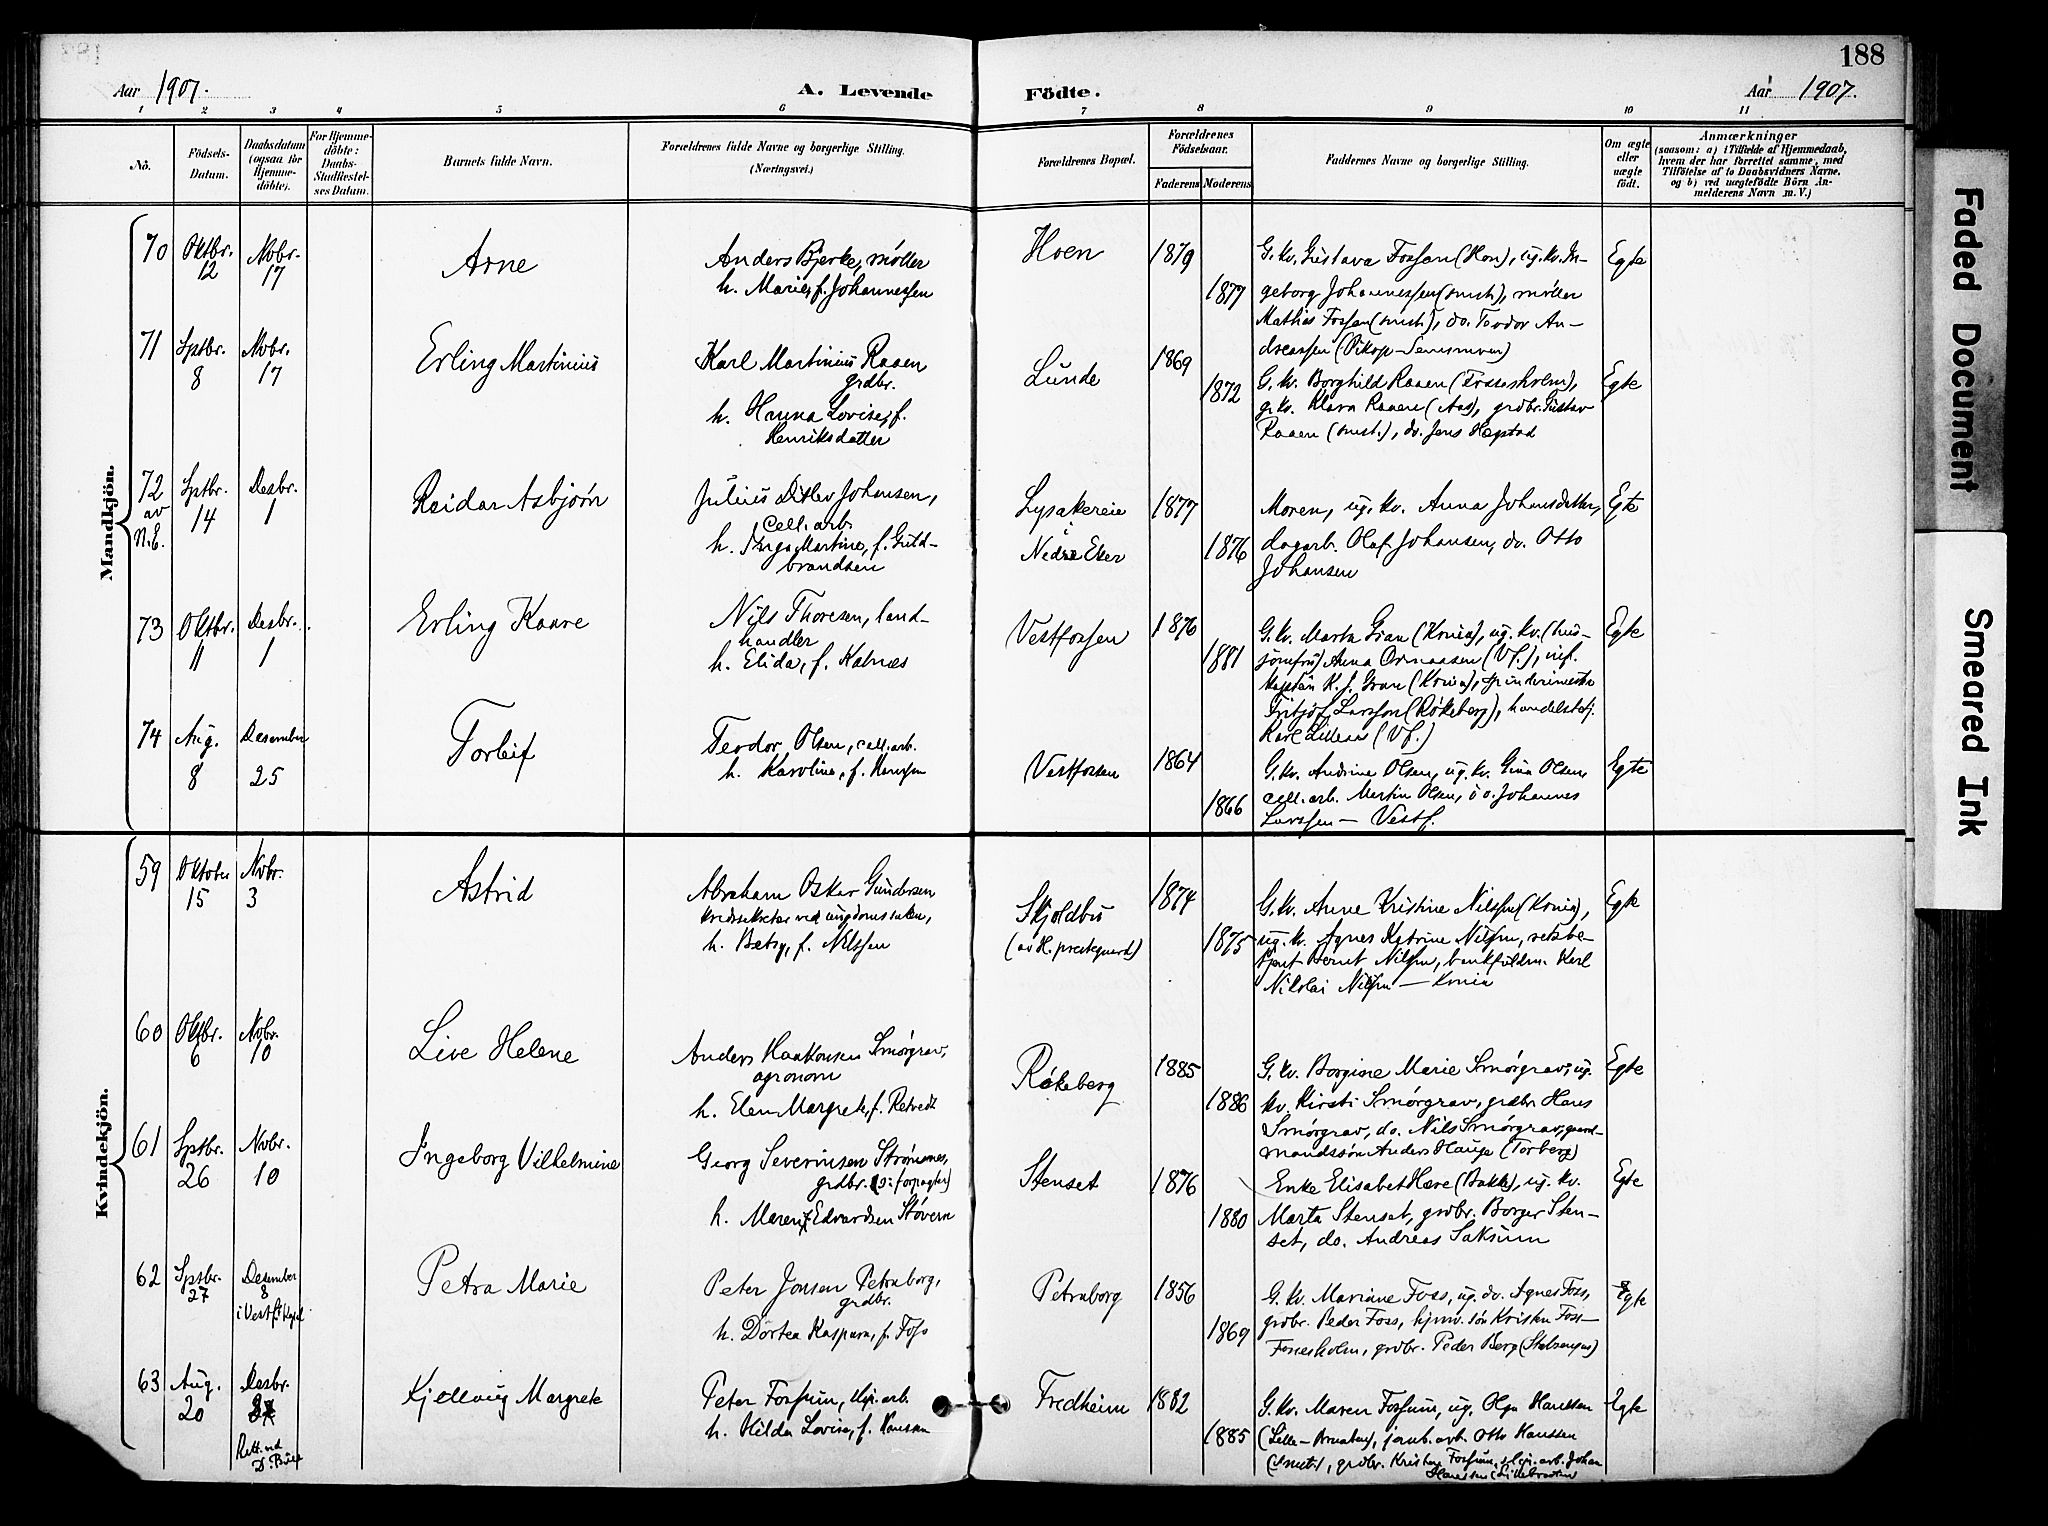 188
Aar 1907.
A. Levende
Födte.
Aar 1907.
1 2 3 4 5 6 7 8 9 10 11
No.
Födsels-
Datum.
Daabsdatum
(ogsaa for
Hjemme-
döbte).
For Hjemme-
döbte:
Daabs-
Stadfæstel-
ses Datum.
Barnets fulde Navn.
Forældrenes fulde Navne og borgerlige Stilling.
(Næringsvei.)
Forældrenes Bopæl.
Forældrenes
Födselsaar.
Faderens
Moderens
Faddernes Navne og borgerlige Stilling.
Om ægte
eller
uægte
födt.
Anmærkninger
(saasom: a) i Tilfælde af Hjemmedaab,
hvem der har forrettet samme, med
Tilföielse af to Daabsvidners Navne,
og b) ved uægtefödte Börn An-
melderens Navn m. V.)
Mandkjön.
70
Oktbr.
12
Nvbr.
17
Arne
Anders Bjerke, møller
h. Marie, f. Johannessen
Hoen
1879
1877
G. kv. Gustava Fossen (Hon), ug. kv. In-
geborg Johannessen (smst.), møller
Mathias Fossen (smst.), do. Teodor An-
dreassen
Egte
71
Sptbr.
8
Nvbr.
17
Erling Martinius
Karl Martinius Raaen
grdbr.
h. Hanna Lovise, f.
Henriksdatter
Lunde
1869
1872
G. kv. Borghild Raaen (Fossesholm),
g. kv. Klara Raaen (Aas), grdbr. Gustav
Raaen (smst.), do. Jens Hægstad
Egte
72
av
N.E.
Sptbr.
14
Desbr.
1
Reidar Asbjørn
Julius Ditlev Johansen,
cell. arb.
h. Inga Martine, f. Guld-
brandsen
Lysakereie
i
Nedre Eker
1877
1876
Moren, ug. kv. Anna Johansdatter,
dagarb. Olaf Johansen, do. Otto
Johansen
Egte
73
Oktbr.
11
Desbr.
1
Erling Kaare
Nils Thoresen, land-
handler
h. Elida, f. Kalnæs
Vestfossen
1876
1881
G. kv. Marta Gran (Kria), ug. kv. (hus-
jomfru) Anna (Vf.),
kaptein K. J. Gran (Kria), spinderimester
Fritjof Larssen (Røkeberg), handelsbetj.
Karl Lilleaas (Vf.)
Egte
74
Aug.
8
Desember
25
Torleif
Teodor Olsen, cell. arb.
h. Karoline, f. Hanssen
Vestfossen
1864
1866
G. kv. Andrine Olsen, ug. kv. Gina Olsen,
cell. arb. Martin Olsen, do. Johannes
Larssen — Vestf.
Egte
Kvindekjön.
59
Oktober
15
Nvbr.
3
Astrid
Abraham Oskar Gundersen
kredssekretær ved ungdomssaken,
h. Betsy, f. Nilssen
Skjoldbu
(av H. prestegaard)
1874
1875
G. kv. Anne Kristine Nilssen (Kria),
ug. kv. Agnes Katrine Nilssen,
Bernt Nilssen, bankfuldm. Karl
Nikolai Nilssen — Kria
Egte
60
Oktbr.
6
Nvbr.
10
Live Helene
Anders Haakonsen Smørgrav,
agronom
h. Elen Margrete, f. Retvedt
Røkeberg
1885
1886
G. kv. Borgine Marie Smørgrav, ug.
kv. Kirsti Smørgrav, grdbr. Hans
Smørgrav, do. Nils Smørgrav, gaard-
mandssøn Anders Hauge (Torberg)
Egte
61
Sptbr.
26
Nvbr.
10
Ingeborg Vilhelmine
Georg Severinsen Strømnes,
grdbr. (o: forpagter)
h. Maren, f. Edvardsen Støvern
Stenset
1876
1880
Enke Elisabet Hære (Bakke), ug. kv.
Marta Stenset, grdbr. Borger Sten-
set, do. Andreas Saksum
Egte
62
Sptbr.
27
Desember
8
i Vestf. Kapel
Petra Marie
Peter Jonsen Petraborg,
grdbr.
h. Dortea Kaspara, f. Foss
Petraborg
1856
1869
G. kv. Mariane Foss, ug. do. Agnes Foss,
grdbr. Peder Foss, hjmv. søn Kristen Foss —
Fossesholm, grdbr. Peder Berg
Egte
63
Aug.
20
Desbr.
Rett. ved
Kjellaug Margrete
Peter Forssum, slip. arb.
h. Hilda Lovise, f. Hanssen
Fredheim
1882
1885
G. kv. Maren Fossum, ug. Olga Hanssen
jernb. arb. Otto Hanssen
(smst.), grdbr. Kristian Fossum, slip. arb. Johan
Hanssen
Egte
Faded Document
Smeared Ink